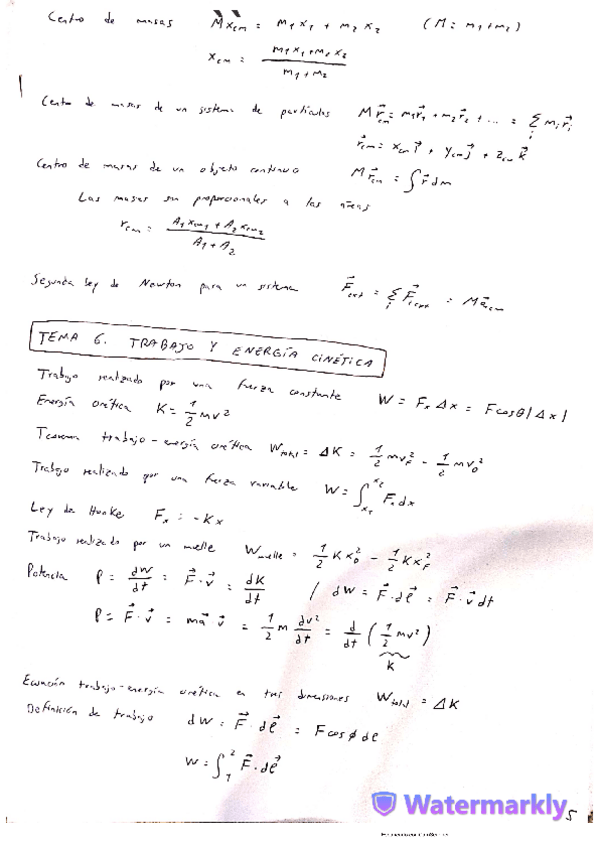 Centro de masas M x_cm = m1 x1 + m2 x2 (M = m1+m2)
x_cm = (m1 x1 + m2 x2) / (m1 + m2)
Centro de masas de un sistema de partículas M r⃗_cm = m1 r⃗1 + m2 r⃗2 + ... = Σ_i mi r⃗i
r⃗_cm = x_cm i⃗ + y_cm j⃗ + z_cm k⃗
Centro de masas de un objeto continuo M r⃗_cm = ∫ r⃗ dm
Las masas son proporcionales a las áreas
r_cm = (A1 x_cm1 + A2 x_cm2) / (A1 + A2)
Segunda ley de Newton para un sistema F⃗_ext = Σ_i F⃗_i ext = M a⃗_cm
TEMA 6. TRABAJO Y ENERGÍA CINÉTICA
Trabajo realizado por una fuerza constante W = Fx Δx = F cosθ |Δx|
Energía cinética K = 1/2 mv²
Teorema trabajo-energía cinética W_total = ΔK = 1/2 mv_F² - 1/2 mv_0²
Trabajo realizado por una fuerza variable W = ∫_{x1}^{x2} Fx dx
Ley de Hooke Fx = -Kx
Trabajo realizado por un muelle W_muelle = 1/2 K x_0² - 1/2 K x_F²
Potencia P = dW/dt = F⃗ · v⃗ = dK/dt / dW = F⃗ · dℓ⃗ = F⃗ · v⃗ dt
P = F⃗ · v⃗ = m a⃗ v⃗ = 1/2 m dv²/dt = d/dt (1/2 mv²)
K
Ecuación trabajo-energía cinética en tres dimensiones W_total = ΔK
Definición de trabajo dW = F⃗ · dℓ⃗ = F cosϕ dℓ
W = ∫_1^2 F⃗ · dℓ⃗
Watermarkly
5